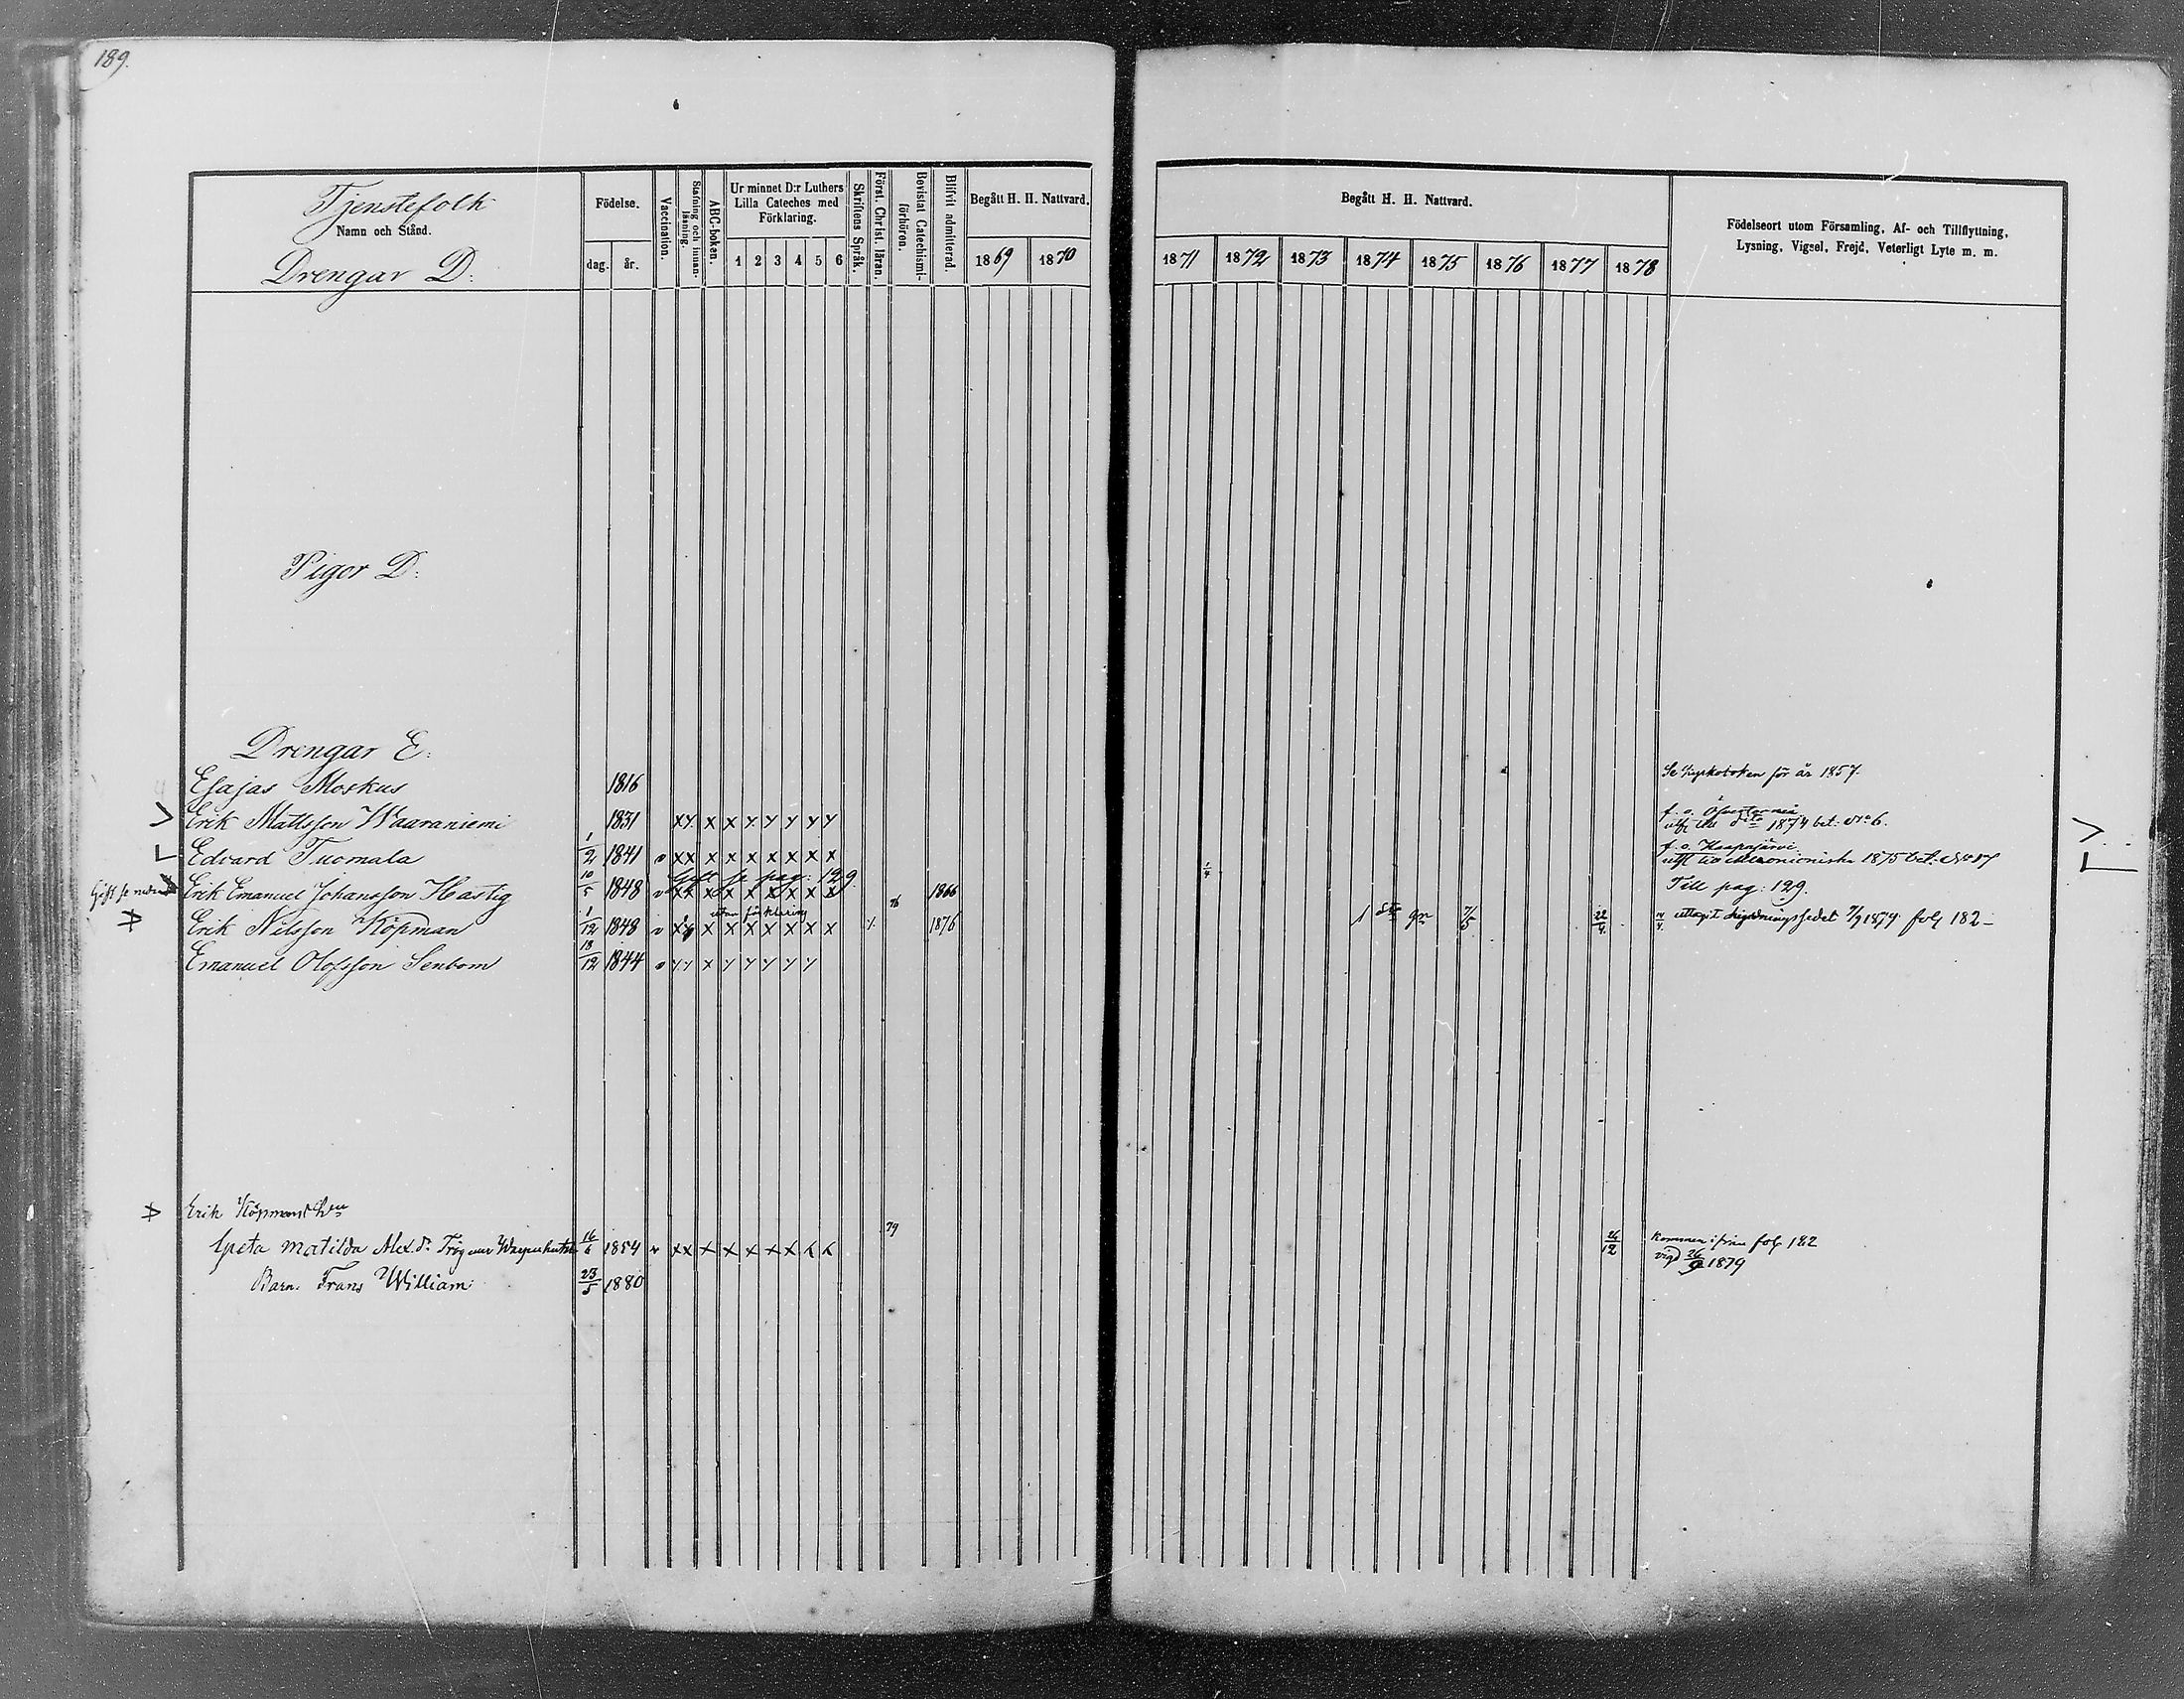 189.
Tjenstefolk
Namn och Stånd.
Drengar D.
Födelse.
dag. år.
Vaccination.
Stafning och innanläsning.
ABC-boken.
Ur minnet D:r Luthers
Lilla Cateches med
Förklaring.
1 2 3 4 5 6
Skriftens Språk.
Först. Christ. läran.
Bevistat Catechismiförhören.
Blifvit admitterad.
Begått H. H. Nattvard.
1869 1870
Begått H. H. Nattvard.
1871 1872 1873 1874 1875 1876 1877 1878
Födelseort utom Församling, Af- och Tillflyttning,
Lysning, Vigsel, Frejd, Veterligt Lyte m. m.
Pigor D:
Drengar E.
Esajas Moskus 1816 Se kyrkoboken för år 1857.
Erik Mattsson Waaraniemi 1831 x y x x y y y y y f. o. Öfvertorneå 1874 bet. No 6.
Edvard Tuomala 1/2 1841 v x x x x x x x x x 1/4 f. o. Haapajärvi 1875 bet.
Gift se pag: 129
Erik Emanuel Johansson Hastig 10/5 1848 v x x x x x x x x x 1866 Till pag: 129.
utan förklaring
Erik Nilsson Köpman 1/12 1848 v x x x x x x x x 76 1876 7/5 22/4 1879 fol 182
Emanuel Olofsson Senbom 18/12 1844 v y y x y y y y y
Erik Köpmans hru
Greta Matilda Alexdr 16/6 1854 v x x x x x x x x x 79 26/12 kommen ifrån fol 182
vigd 26/9 1879
Barn. Frans William 23/5 1880